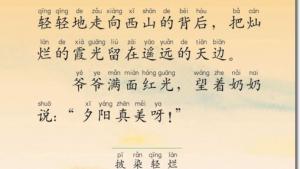 qīng qīng de zǒu xiàng xī shān de bèi hòu bǎ càn
轻轻地走向西山的背后，把灿
làn de xiá guāng liú zài yáo yuǎn de tiān biān
烂的霞光留在遥远的天边。
yé ye mǎn miàn hóng guāng wàng zhe nǎi nai
爷爷满面红光，望着奶奶
shuō xī yáng zhēn měi ya
说：“夕阳真美呀！”
pī rǎn qīng làn
披染轻烂